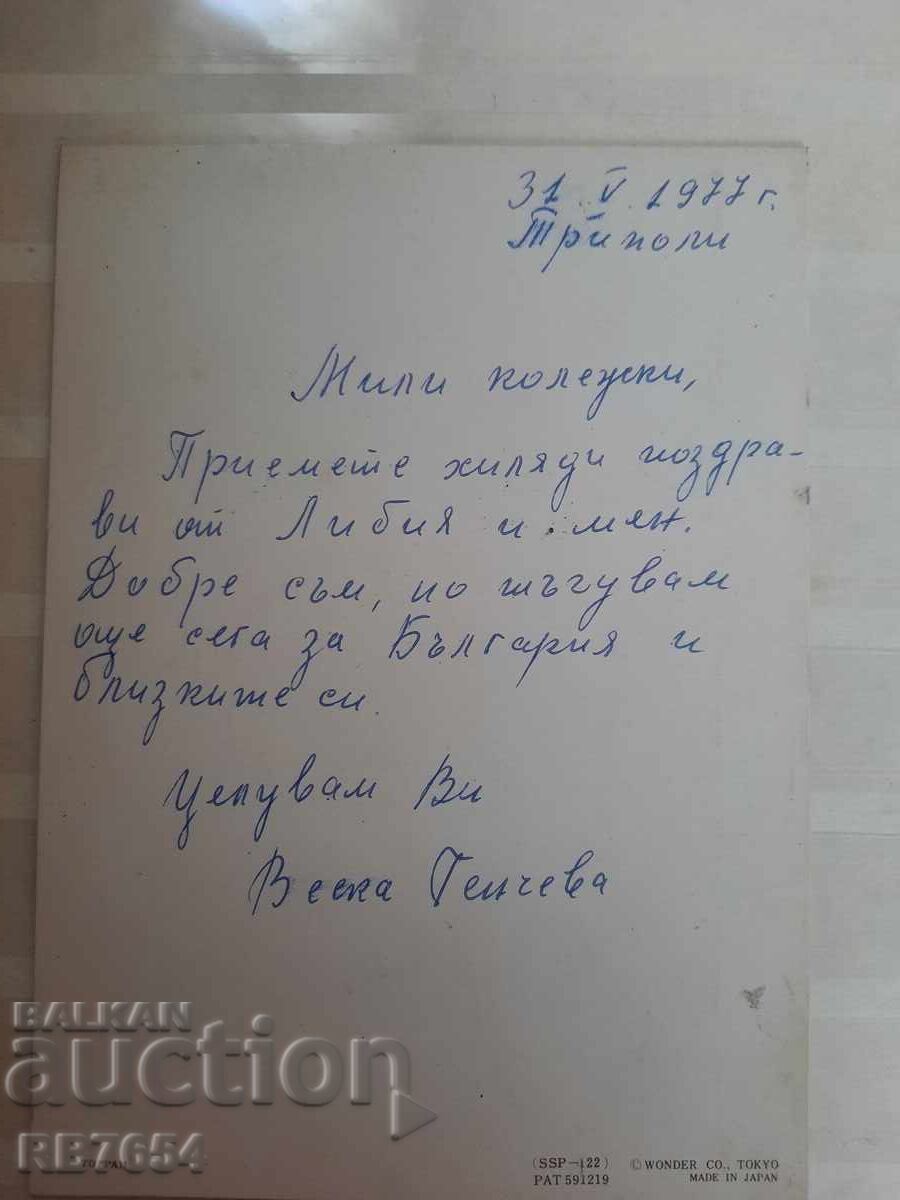 31. V. 1977 г.
Триполи
Мили колежки,
Приемете хиляди поздра-
ви от Либия и мен.
Добре съм, но тъгувам
още сега за България и
близките си.
Целувам Ви
Веска Генчева
BALKAN
auction
RB7654
TOPPAN
(SSP-122)
PAT 591219
© WONDER CO., TOKYO
MADE IN JAPAN